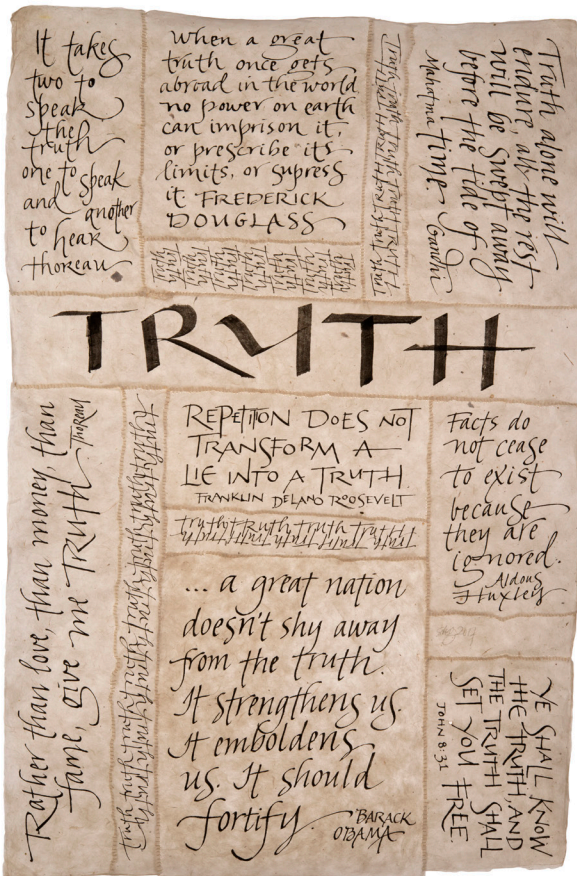 It takes
two to
speak
the
truth
one to speak
and another
to hear
Thoreau
When a great
truth once gets
abroad in the world
no power on earth
can imprison it,
or prescribe its
limits, or supress
it FREDERICK
DOUGLASS
Truth alone will
endure, all the rest
will be swept away
before the tide of
time. Mahatma Gandhi
TRUTH
Rather than love, than money, than
fame, give me TRUTH. Thoreau
REPETITION DOES NOT
TRANSFORM A
LIE INTO A TRUTH.
FRANKLIN DELANO ROOSEVELT
truth truth truth truth
... a great nation
doesn't shy away
from the truth.
It strengthens us.
It emboldens
us. It should
fortify.
BARACK
OBAMA
Facts do
not cease
to exist
because
they are
ignored.
Aldous
Huxley
YE SHALL KNOW
THE TRUTH, AND
THE TRUTH SHALL
SET YOU FREE.
JOHN 8:31